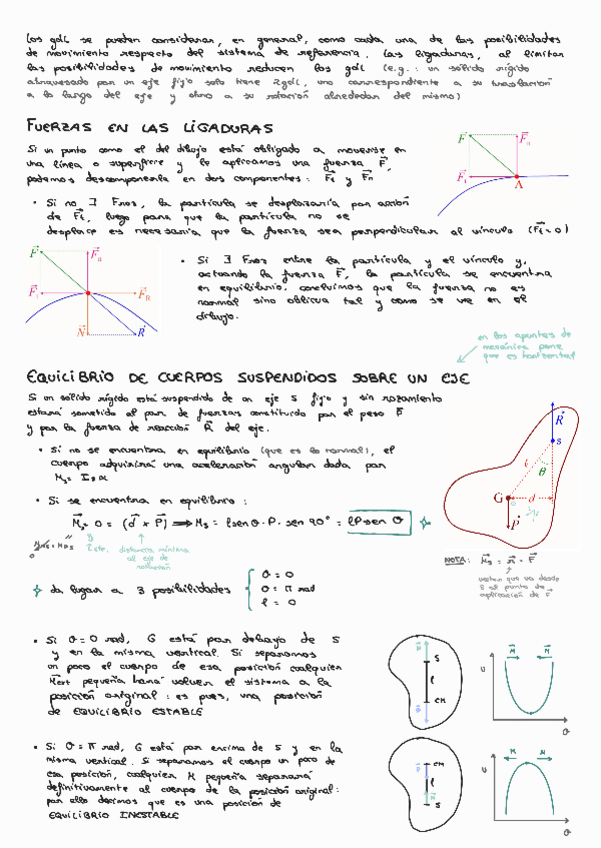 Los gdl se pueden considerar, en general, como cada una de las posibilidades
de movimiento respecto del sistema de referencia. Las ligaduras, al limitar
las posibilidades de movimiento reducen los gdl (e.g.: un sólido rígido
atravesado por un eje fijo solo tiene 2gdl, uno correspondiente a su traslación
a lo largo del eje y otro a su rotación alrededor del mismo)
FUERZAS EN LAS LIGADURAS
Si un punto como el del dibujo está obligado a moverse en
una línea o superficie y le aplicamos una fuerza F,
podemos descomponerla en dos componentes: Ft y Fn
F Fn
Ft A
• Si no ∃ Froz, la partícula se desplazaría por acción
de Ft, luego para que la partícula no se
desplace es necesaria que la fuerza sea perpendicular al vínculo (Ft=0)
• Si ∃ Froz entre la partícula y el vínculo y,
actuando la fuerza F, la partícula se encuentra
en equilibrio, concluimos que la fuerza no es
normal sino oblicua tal y como se ve en el
dibujo.
F Fn
Ft FR
N R
en los apuntes de
mecánica pone
que es horizontal
EQUILIBRIO DE CUERPOS SUSPENDIDOS SOBRE UN EJE
Si un sólido rígido está suspendido de un eje s fijo y sin rozamiento
estará sometido al par de fuerzas constituido por el peso P
y por la fuerza de reacción R del eje.
• Si no se encuentra en equilibrio (que es lo normal), el
cuerpo adquirirá una aceleración angular dada por
Ms = Is α
• Si se encuentra en equilibrio:
Ms = 0 = (d × P) ⟹ Ms = l senθ · P · sen 90° = lP sen θ
distancia mínima
al eje de
rotación
R
s
l θ
G d
P
NOTA: Ms = r × F
vector que va desde
s al punto de
aplicación de F
da lugar a 3 posibilidades
θ = 0
θ = π rad
l = 0
• Si θ = 0 rad, G está por debajo de S
y en la misma vertical. Si separamos
un poco el cuerpo de esa posición cualquier
Mext pequeña hará volver el sistema a la
posición original: es pues, una posición
de EQUILIBRIO ESTABLE
S
l
CM
M M
U
θ
• Si θ = π rad, G está por encima de S y en la
misma vertical. Si separamos el cuerpo un poco de
esa posición, cualquier M pequeña separará
definitivamente al cuerpo de la posición original:
por ello decimos que es una posición de
EQUILIBRIO INESTABLE
CM
l
S
M M
U
θ